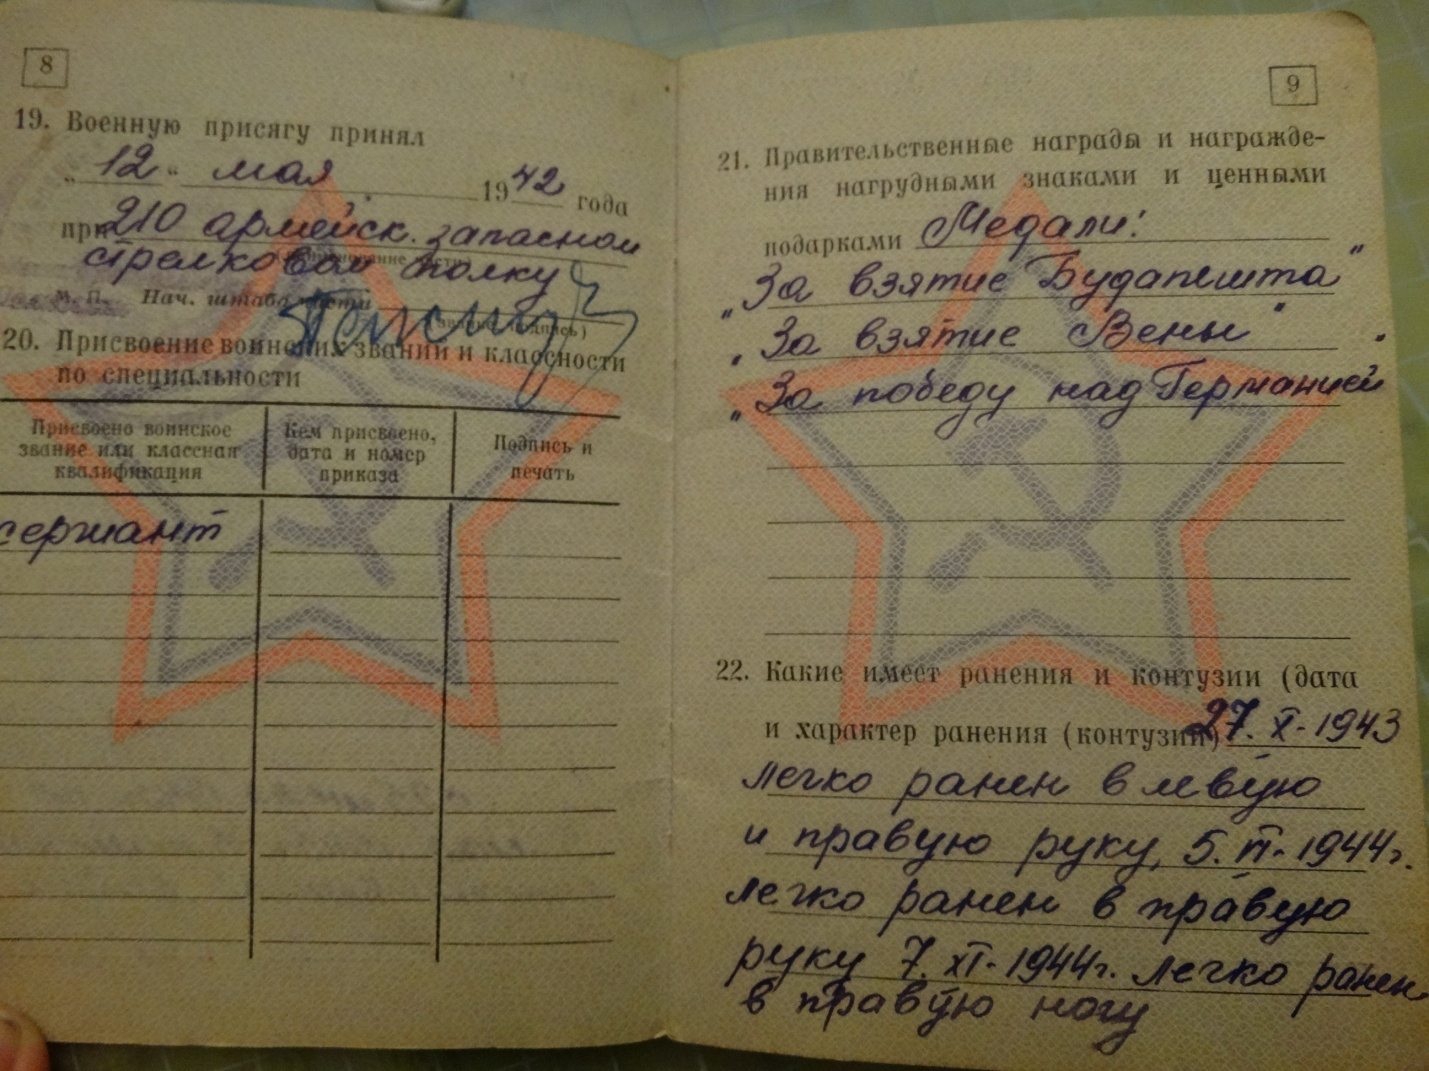 8
19. Военную присягу принял
„ 12 “ мая 1942 года
при 210 армейск. запасном
стрелковом полку
М. П. Нач. штаба части
(подпись)
20. Присвоение воинских званий и классности
по специальности
Присвоено воинское
звание или классная
квалификация
Кем присвоено,
дата и номер
приказа
Подпись и
печать
сержант
9
21. Правительственные награды и награжде-
ния нагрудными знаками и ценными
подарками Медали:
„За взятие Будапешта“
„За взятие Вены“
„За победу над Германией“
22. Какие имеет ранения и контузии (дата
и характер ранения (контузии) 27. X - 1943
легко ранен в левую
и правую руку, 5. VI - 1944г.
легко ранен в правую
руку 7. XI - 1944г. легко ранен
в правую ногу